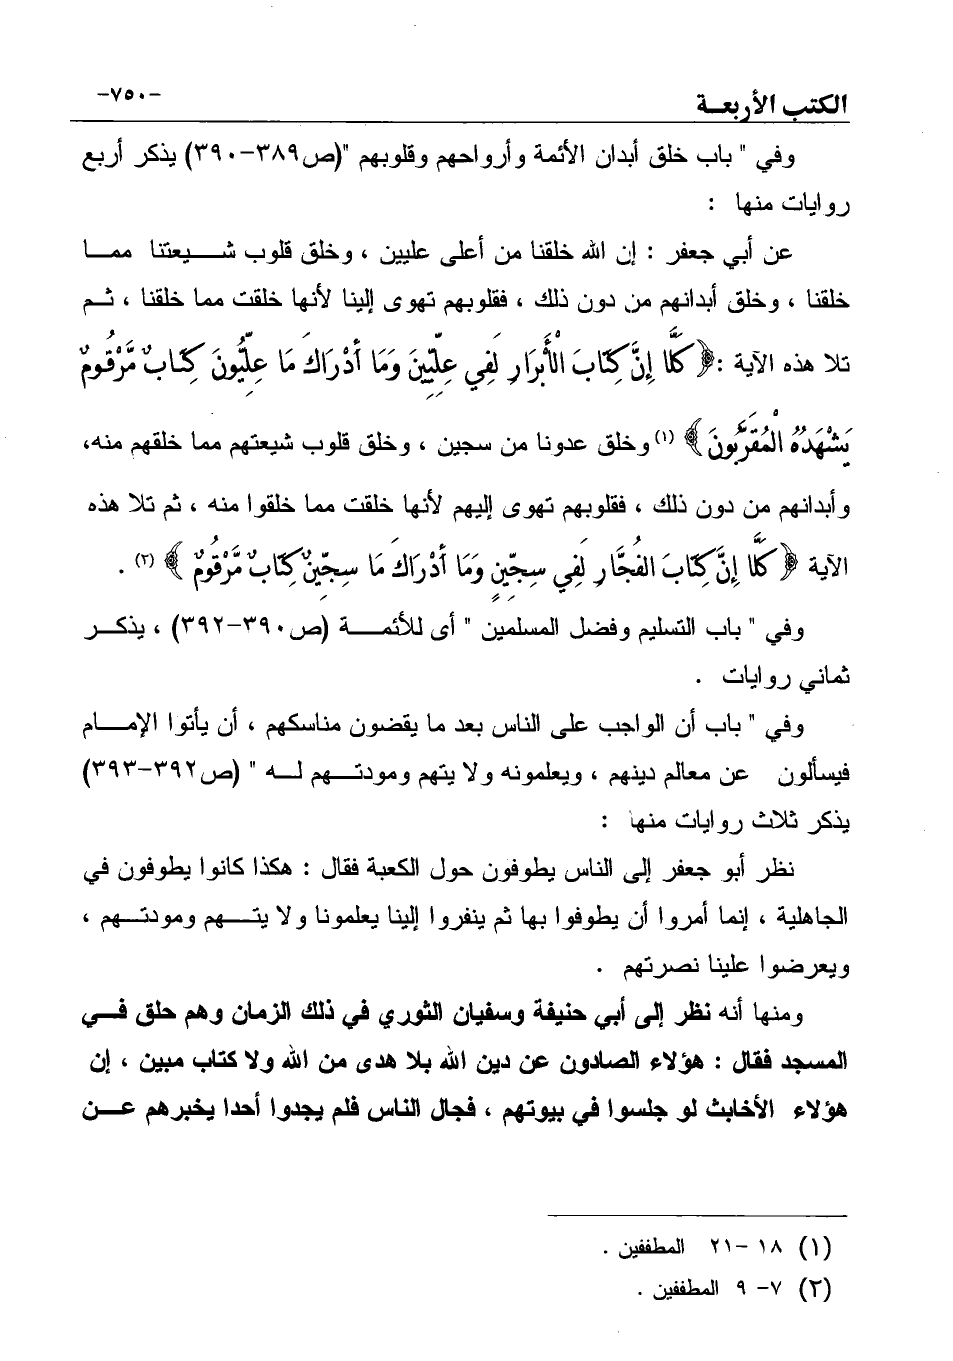 الكتب الأربعة
-٧٥٠-
وفي " باب خلق أبدان الأئمة وأرواحهم وقلوبهم "(ص٣٨٩-٣٩٠) يذكر أربع
روايات منها :
عن أبي جعفر : إن الله خلقنا من أعلى عليين ، وخلق قلوب شيعتنا مما
خلقنا ، وخلق أبدانهم من دون ذلك ، فقلوبهم تهوى إلينا لأنها خلقت مما خلقنا ، ثم
تلا هذه الآية :﴿ كَلَّا إِنَّ كِتَابَ الْأَبْرَارِ لَفِي عِلِّيِّينَ وَمَا أَدْرَاكَ مَا عِلِّيُّونَ كِتَابٌ مَّرْقُومٌ
يَشْهَدُهُ الْمُقَرَّبُونَ ﴾ (١) وخلق عدونا من سجين ، وخلق قلوب شيعتهم مما خلقهم منه،
وأبدانهم من دون ذلك ، فقلوبهم تهوى إليهم لأنها خلقت مما خلقوا منه ، ثم تلا هذه
الآية ﴿ كَلَّا إِنَّ كِتَابَ الفُجَّارِ لَفِي سِجِّينٍ وَمَا أَدْرَاكَ مَا سِجِّينٌ كِتَابٌ مَّرْقُومٌ ﴾ (٢) .
وفي " باب التسليم وفضل المسلمين " أى للأئمة (ص٣٩٠-٣٩٢) ، يذكر
ثماني روايات .
وفي " باب أن الواجب على الناس بعد ما يقضون مناسكهم ، أن يأتوا الإمام
فيسألون عن معالم دينهم ، ويعلمونه ولا يتهم ومودتهم له " (ص٣٩٢-٣٩٣)
يذكر ثلاث روايات منها :
نظر أبو جعفر إلى الناس يطوفون حول الكعبة فقال : هكذا كانوا يطوفون في
الجاهلية ، إنما أمروا أن يطوفوا بها ثم ينفروا إلينا يعلمونا ولا يتهم ومودتهم ،
ويعرضوا علينا نصرتهم .
ومنها أنه نظر إلى أبي حنيفة وسفيان الثوري في ذلك الزمان وهم حلق في
المسجد فقال : هؤلاء الصادون عن دين الله بلا هدى من الله ولا كتاب مبين ، إن
هؤلاء الأخابث لو جلسوا في بيوتهم ، فجال الناس فلم يجدوا أحدا يخبرهم عن
(١) ١٨ -٢١ المطففين .
(٢) ٧- ٩ المطففين .